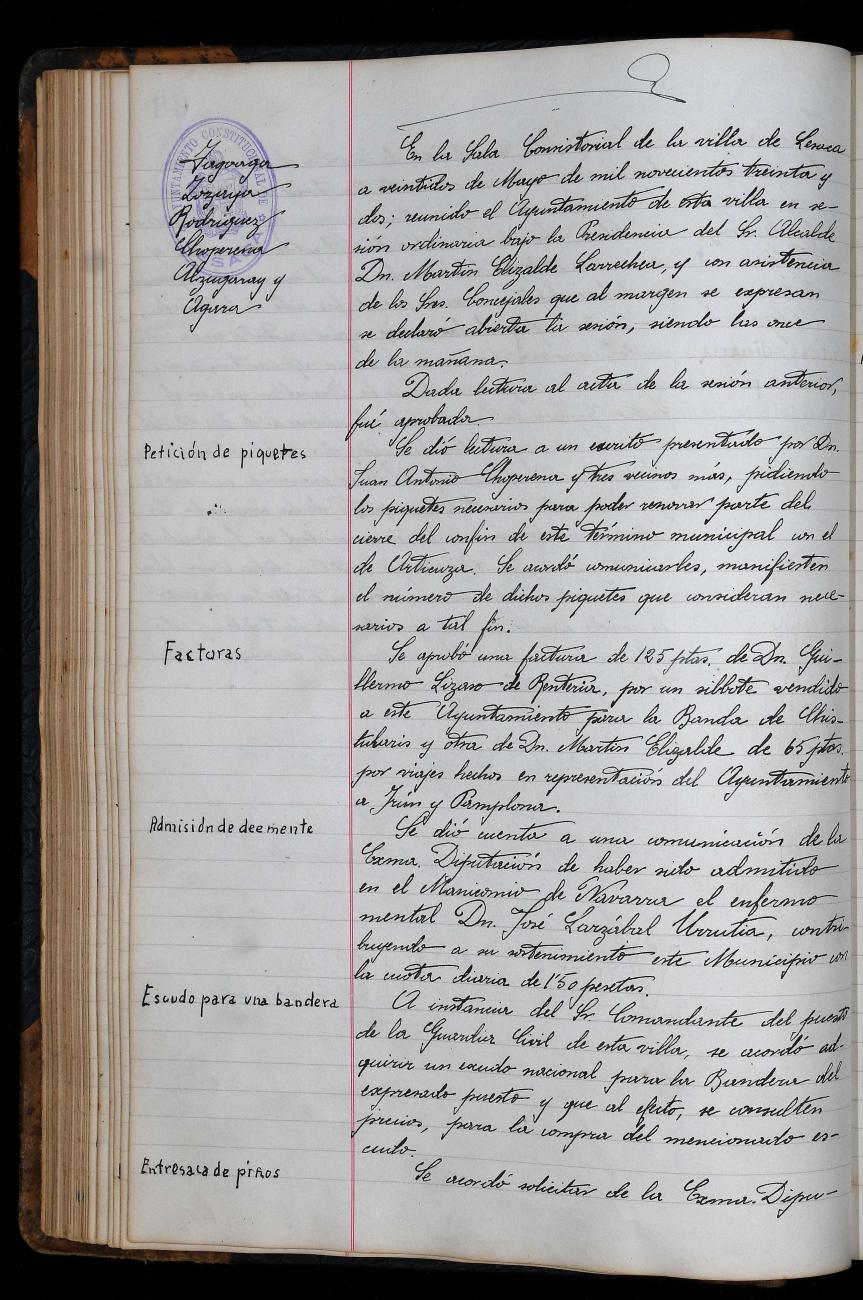 AYUNTAMIENTO CONSTITUCIONAL DE LESACA
Tagoaga
Lozaya
Rodriguez
Choperena
Alzugaray y
Agara
En la Sala Consistorial de la villa de Lesaca
a veintidos de Mayo de mil novecientos treinta y
dos; reunido el Ayuntamiento de esta villa en se-
sión ordinaria bajo la Presidencia del Sr. Alcalde
Dn. Martin Elizalde Larrechea, y con asistencia
de los Sres. Concejales que al margen se expresan
se declaró abierta la sesión, siendo las once
de la mañana.
Dada lectura al acta de la sesión anterior,
fué aprobada.
Petición de piquetes
Se dió lectura a un escrito presentado por Dn.
Juan Antonio Choperena y tres vecinos más, pidiendo
los piquetes necesarios para poder renovar parte del
cierre del confin de este término municipal con el
de Articuza. Se acordó comunicarles, manifiesten
el número de dichos piquetes que consideran nece-
sarios a tal fin.
Facturas
Se aprobó una factura de 125 ptas. de Dn. Gui-
llermo Lizaso de Renteria, por un silbote vendido
a este Ayuntamiento para la Banda de Chis-
tularis y otra de Dn. Martin Elizalde de 65 ptas.
por viajes hechos en representación del Ayuntamiento
a Irún y Pamplona.
Admisión de deemente
Se dió cuenta a una comunicación de la
Exma. Diputación de haber sido admitido
en el Manicomio de Navarra el enfermo
mental Dn. José Larzábal Urrutia, contri-
buyendo a su sostenimiento este Municipio con
la cuota diaria de 1'50 pesetas.
Escudo para una bandera
A instancia del Sr. Comandante del puesto
de la Guardia Civil de esta villa, se acordó ad-
quirir un escudo nacional para la Bandera del
expresado puesto y que al efecto, se consulten
precios, para la compra del mencionado es-
cudo.
Entresaca de piños
Se acordó solicitar de la Exma. Dipu-